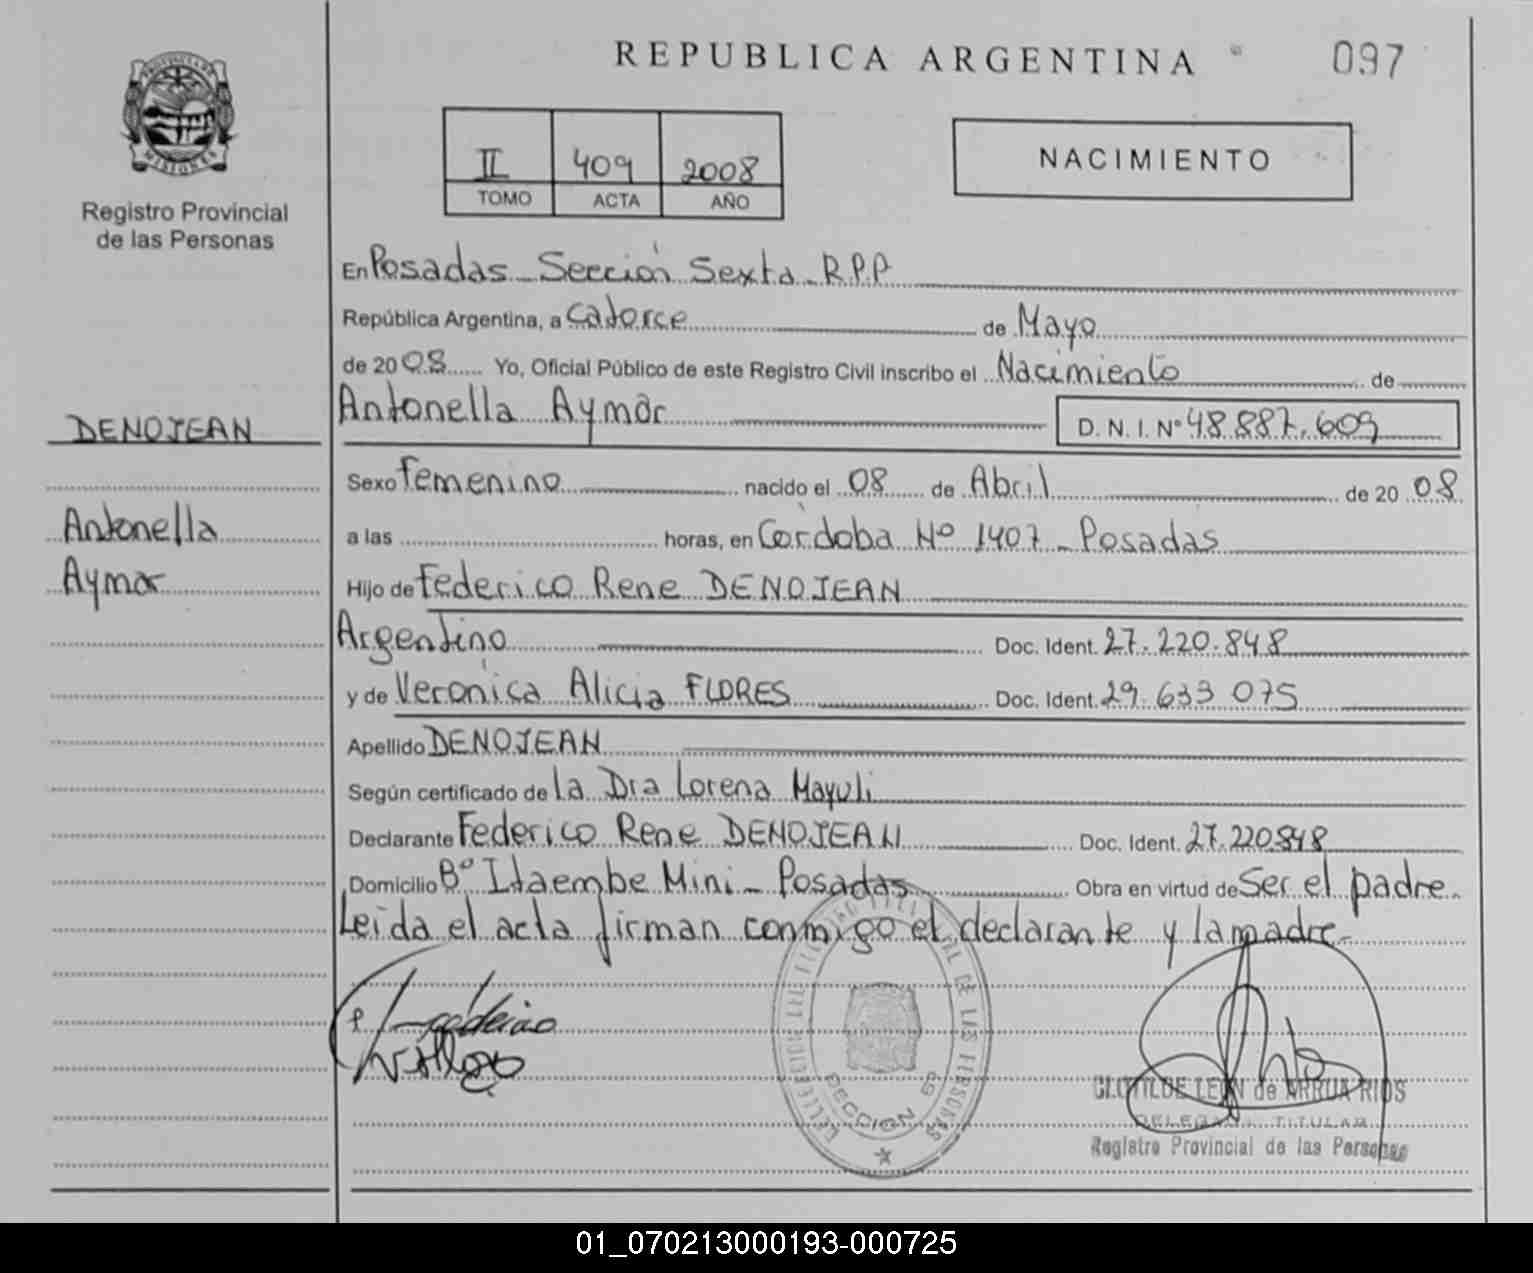 PROVINCIA DE
MISIONES
Registro Provincial
de las Personas
DENOJEAN
Antonella
Aymar
REPUBLICA ARGENTINA
097
II 409 2008
TOMO ACTA AÑO
NACIMIENTO
En Posadas - Sección Sexta - R.P.P
República Argentina, a Catorce de Mayo
de 2008 Yo, Oficial Público de este Registro Civil inscribo el Nacimiento de
Antonella Aymar D. N. I. Nº 48.887.609
Sexo Femenino nacido el 08 de Abril de 20 08
a las horas, en Córdoba Nº 1407 - Posadas
Hijo de Federico Rene DENOJEAN
Argentino Doc. Ident. 27.220.848
y de Veronica Alicia FLORES Doc. Ident. 29.633 075
Apellido DENOJEAN
Según certificado de la Dra Lorena Mayuli
Declarante Federico Rene DENOJEAN Doc. Ident. 27.220.848
Domicilio Bº Itaembe Mini - Posadas Obra en virtud de Ser el padre.
Leida el acta firman conmigo el declarante y la madre.-
DE LAS PERSONAS
SECCION 6ª
CLOTILDE LEON de ARRUA RIOS
DELEGADA TITULAR
Registro Provincial de las Personas
01_070213000193-000725